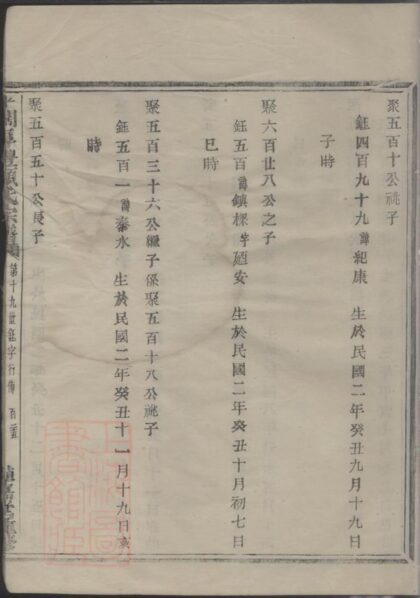 聚五百十公祧子
鈺四百九十九諱紀康 生於民國二年癸丑九月十九日
子時
聚六百廿八公之子
鈺五百諱鎮樑字廼安 生於民國二年癸丑十月初七日
巳時
聚五百三十六公繼子係聚五百十八公祧子
鈺五百一諱泰水 生於民國二年癸丑十一月十九日亥
時
聚五百五十公長子
氏宗譜 第十九世鈺字行傳